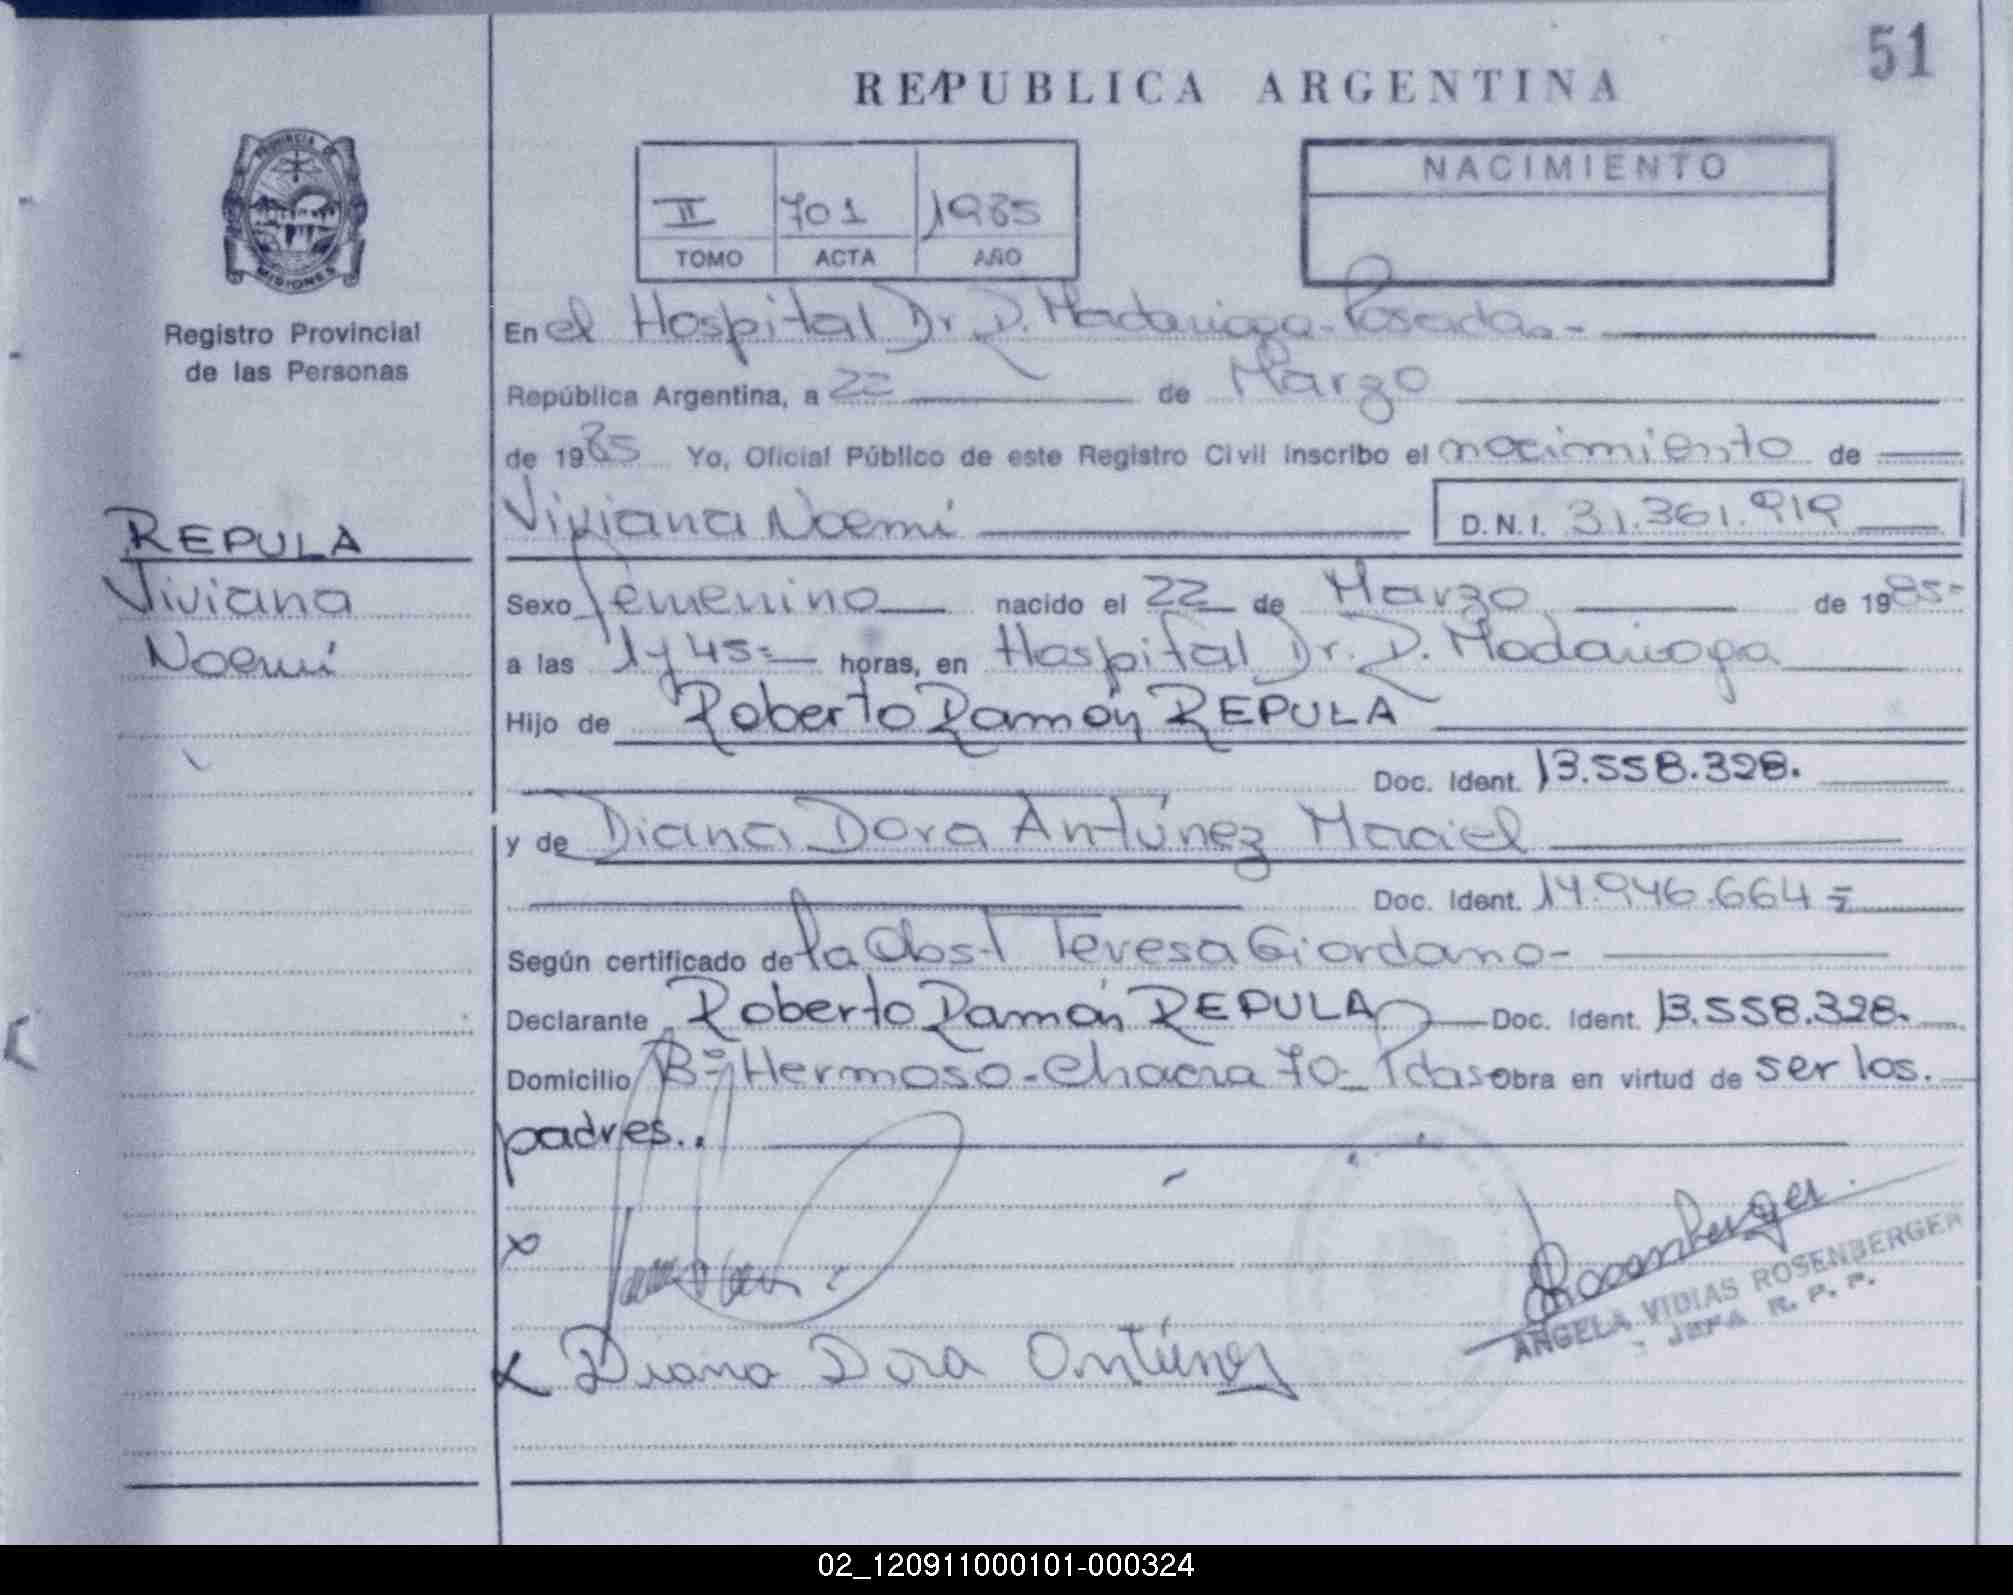 51
REPUBLICA ARGENTINA
PROVINCIA DE
MISIONES
Registro Provincial
de las Personas
II 701 1985
TOMO ACTA AÑO
NACIMIENTO
En el Hospital Dr. R. Madariaga - Posadas -
República Argentina, a 22 de Marzo
de 1985 Yo, Oficial Público de este Registro Civil inscribo el nacimiento de
Viviana Noemí D.N.I. 31.361.919
REPULA
Viviana
Noemí
Sexo femenino nacido el 22 de Marzo de 1985-
a las 1 y 45 horas, en Hospital Dr. R. Madariaga
Hijo de Roberto Ramón REPULA
Doc. Ident. 13.558.328.
y de Diana Dora Antúnez Maciel
Doc. Ident. 14.946.664
Según certificado de la Obst Teresa Giordano-
Declarante Roberto Ramón REPULA Doc. Ident. 13.558.328.
Domicilio Bº Hermoso - Chacra 70 - Pdas Obra en virtud de ser los
padres..
x
Rosenberger
ANGELA VIDIAS ROSENBERGER
JEFA R. P. P.
x Diana Dora Antúnez
02_120911000101-000324